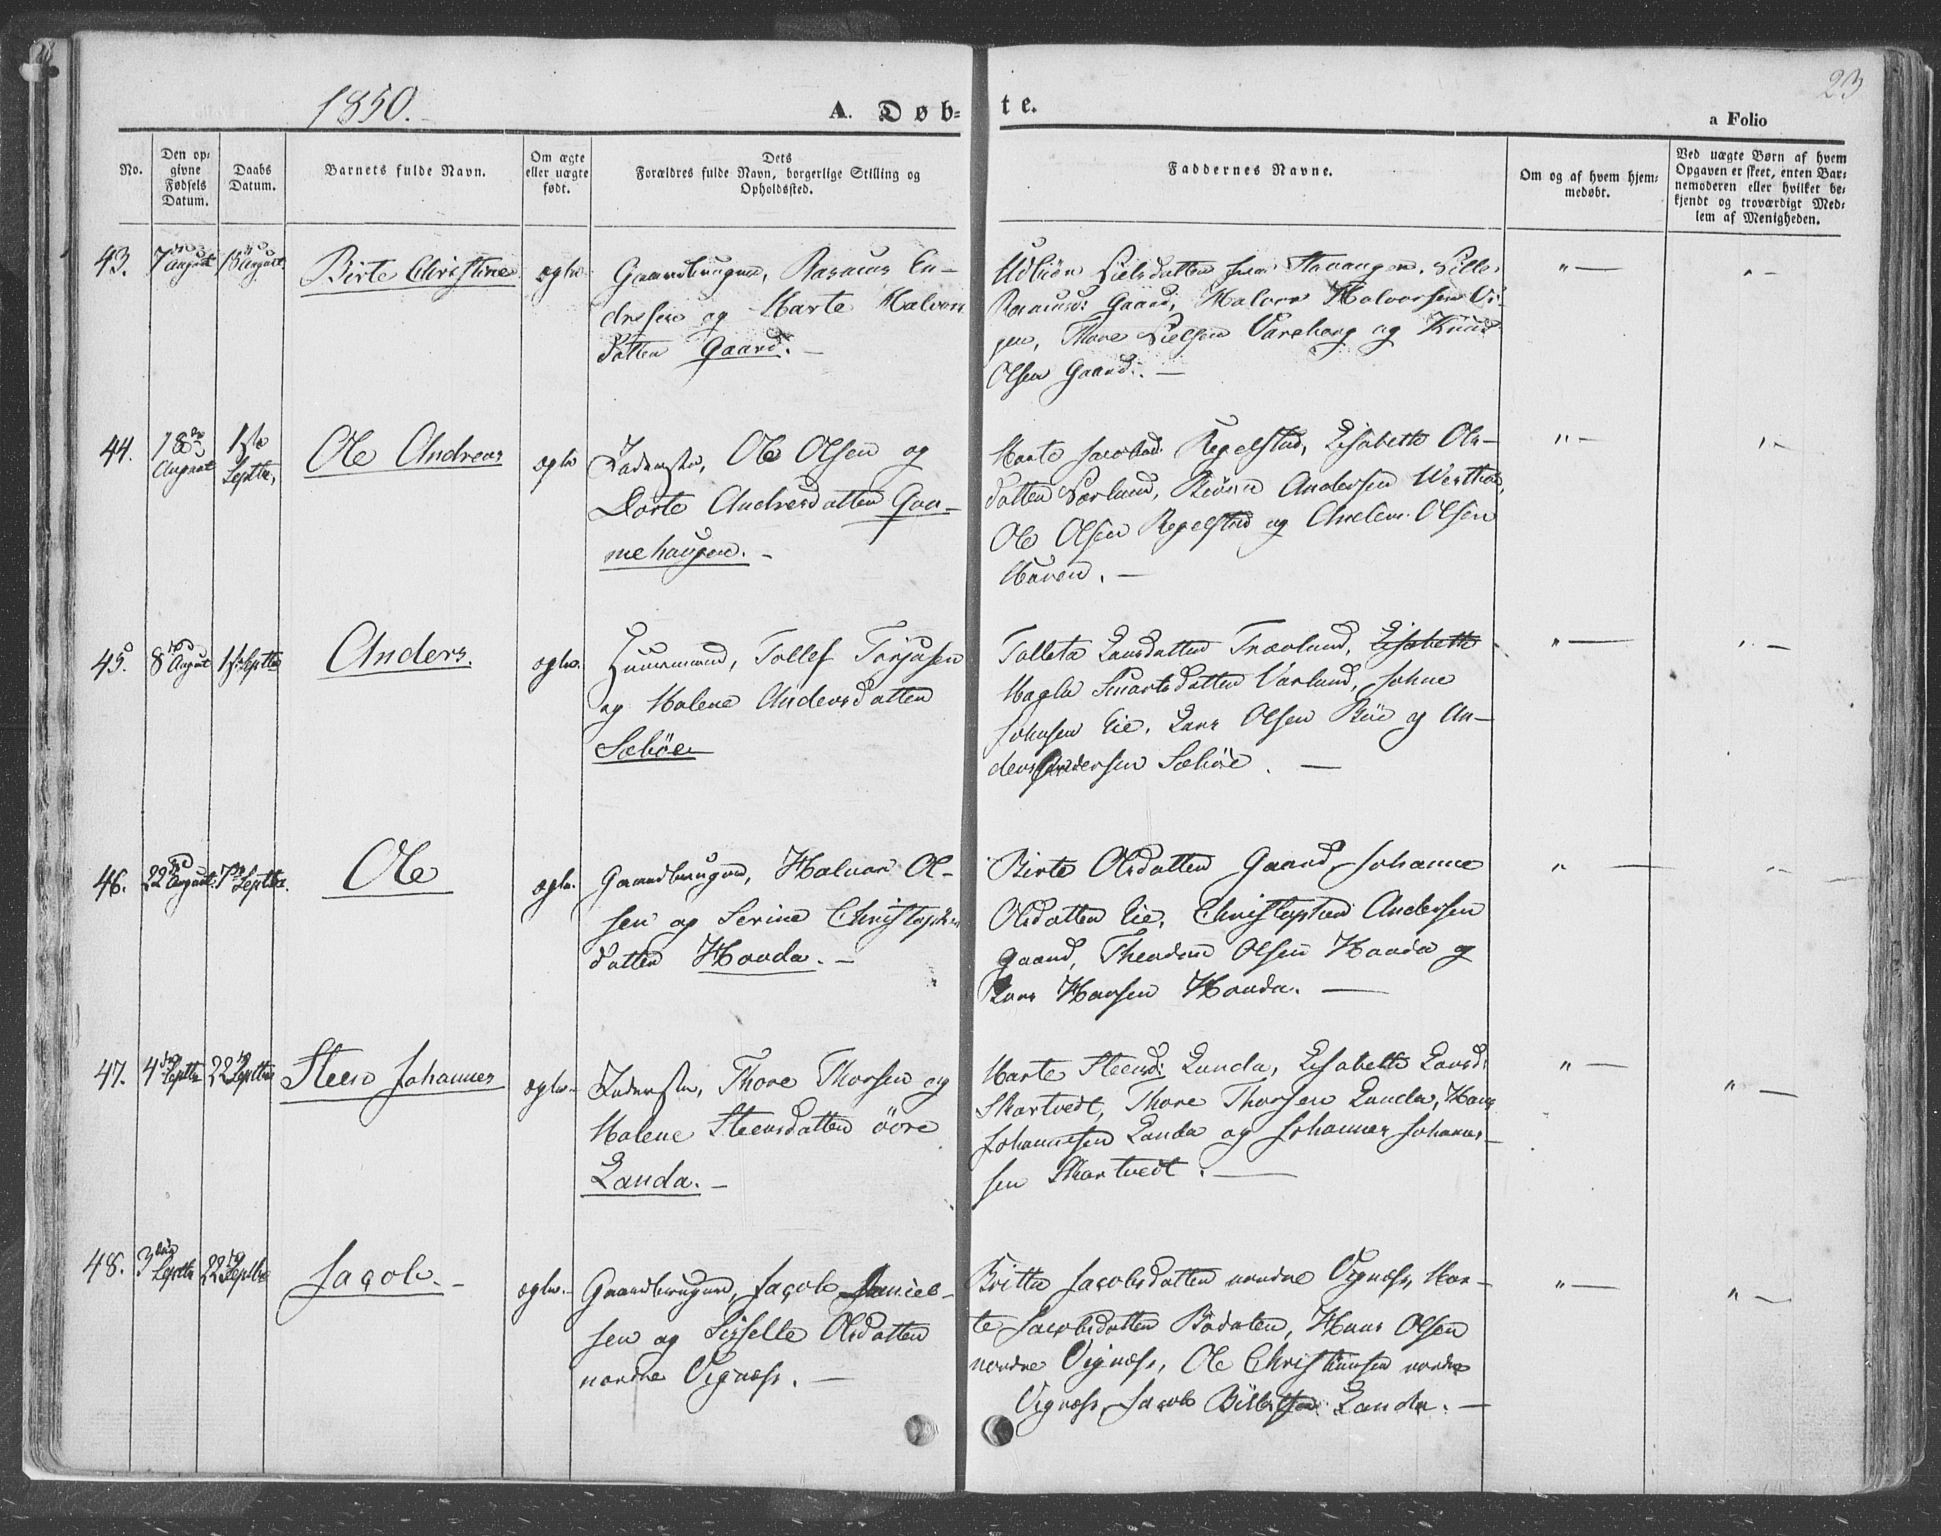 23
1850.
A. Døb-
te.
a Folio
No.
Den op-
givne
Fødsels
Datum.
Daabs
Datum.
Barnets fulde Navn.
Om ægte
eller uægte
født.
Dets
Forældres fulde Navn, borgerlige Stilling og
Opholdssted.
Faddernes Navne.
Om og af hvem hjem-
medøbt.
Ved uægte Børn af hvem
Opgaven er skeet, enten Bar-
nemoderen eller hvilket be-
kjendt og troværdigt Med-
lem af Menigheden.
43.
7de August
18 August
Birte Christine
ægte
Gaardbruger, Rasmus En-
dresen og Marte Halvors
datter Gaard. -
Nielsdatter fra Stavanger,
Rasmusd: Gaard, Halvor Halvorsen Vi-
gen, Thore Nielsen Vareberg og Knud
Olsen Gaard. -
" -
" -
44.
18de
August
1ste
Septbr.
Ole Andreas
ægte
Inderste, Ole Olsen og
Dorte Andresdatter Gaa-
mehaugen. -
Marte Jacobsd. Regelstad, Lisabeth Ols-
datter Nærland, Biørn Andersen
Ole Olsen Regelstad og Olsen
" -
" -
45.
8de August
1ste Septbr
Anders.
ægte.
Huusmand, Tollef Torjusen
og Malene Andersdatter
Sæbøe
Talleta Larsdatter Trævland, Lisabeth
Magla datter Varland, Johne
Johnsen Eie, Lars Olsen Bøe og An-
ders Andersen Sæbøe. -
" -
" -
46.
22de August.
7de Septbr.
Ole
ægte.
Gaardbruger, Halvor Ol-
sen og Serine Christophers
datter Haada. -
Birte Olsdatter Gaard, Johanne
Olsdatter Eie, Andersen
Gaard, Theodor Olsen Haada og
Lars Hansen Haada. -
" -
" -
47.
4de Septbr
22de Septbr
Steen Johannes
ægte.
Inderste, Thore Thorsen og
Malene Steensdatter øvre
Landa. -
Marte Steensd: Landa, Lisabeth Larsd:
Skartvedt, Thore Thorsen Landa, Hans
Johannesen Landa og Johannes Johannes-
sen Skartvedt. -
" -
" -
48.
3die Septbr
22de Septbr
Jacob. -
ægte. -
Gaardbruger, Jacob Daniel-
sen og Sisselle Olsdatter
nordre Vignæss. -
Britta Jacobsdatter nordre Vignæss, Mar-
te Jacobsdatter Hans Olsen
nordre Vignæss, Ole Christiansen nordre
Vignæss, Jacob Landa. -
" -
" -